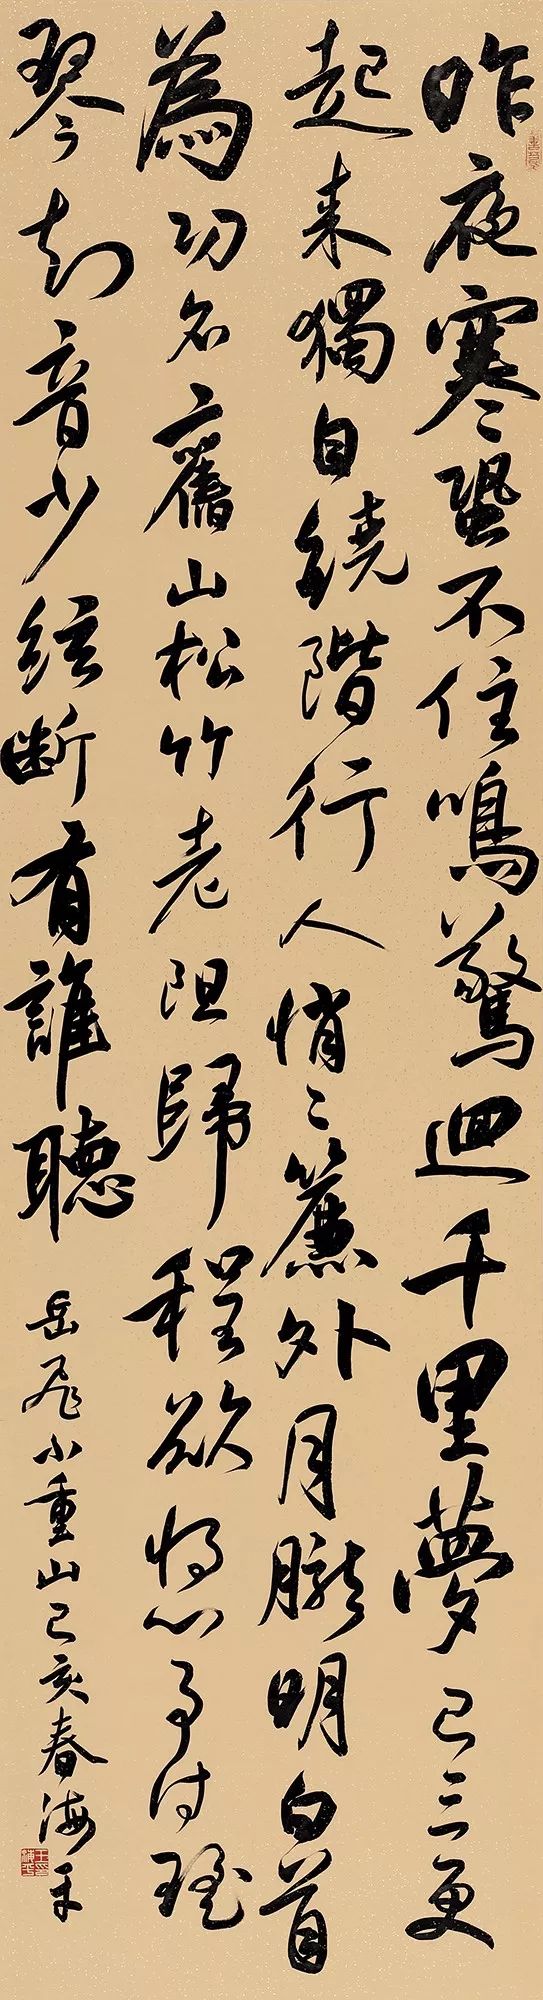 昨夜寒蛩不住鳴驚迴千里夢已三更
起来獨自繞階行人悄〻簾外月朧明白首
為功名舊山松竹老阻歸程欲將心事付瑤
琴知音少絃断有誰聽
岳飛小重山己亥春海平